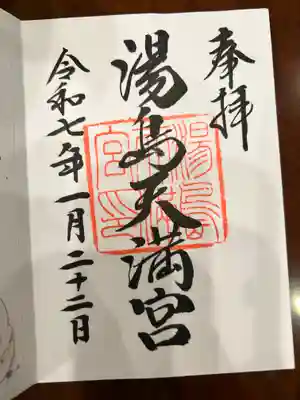 奉拝
湯島天満宮
令和七年一月二十二日